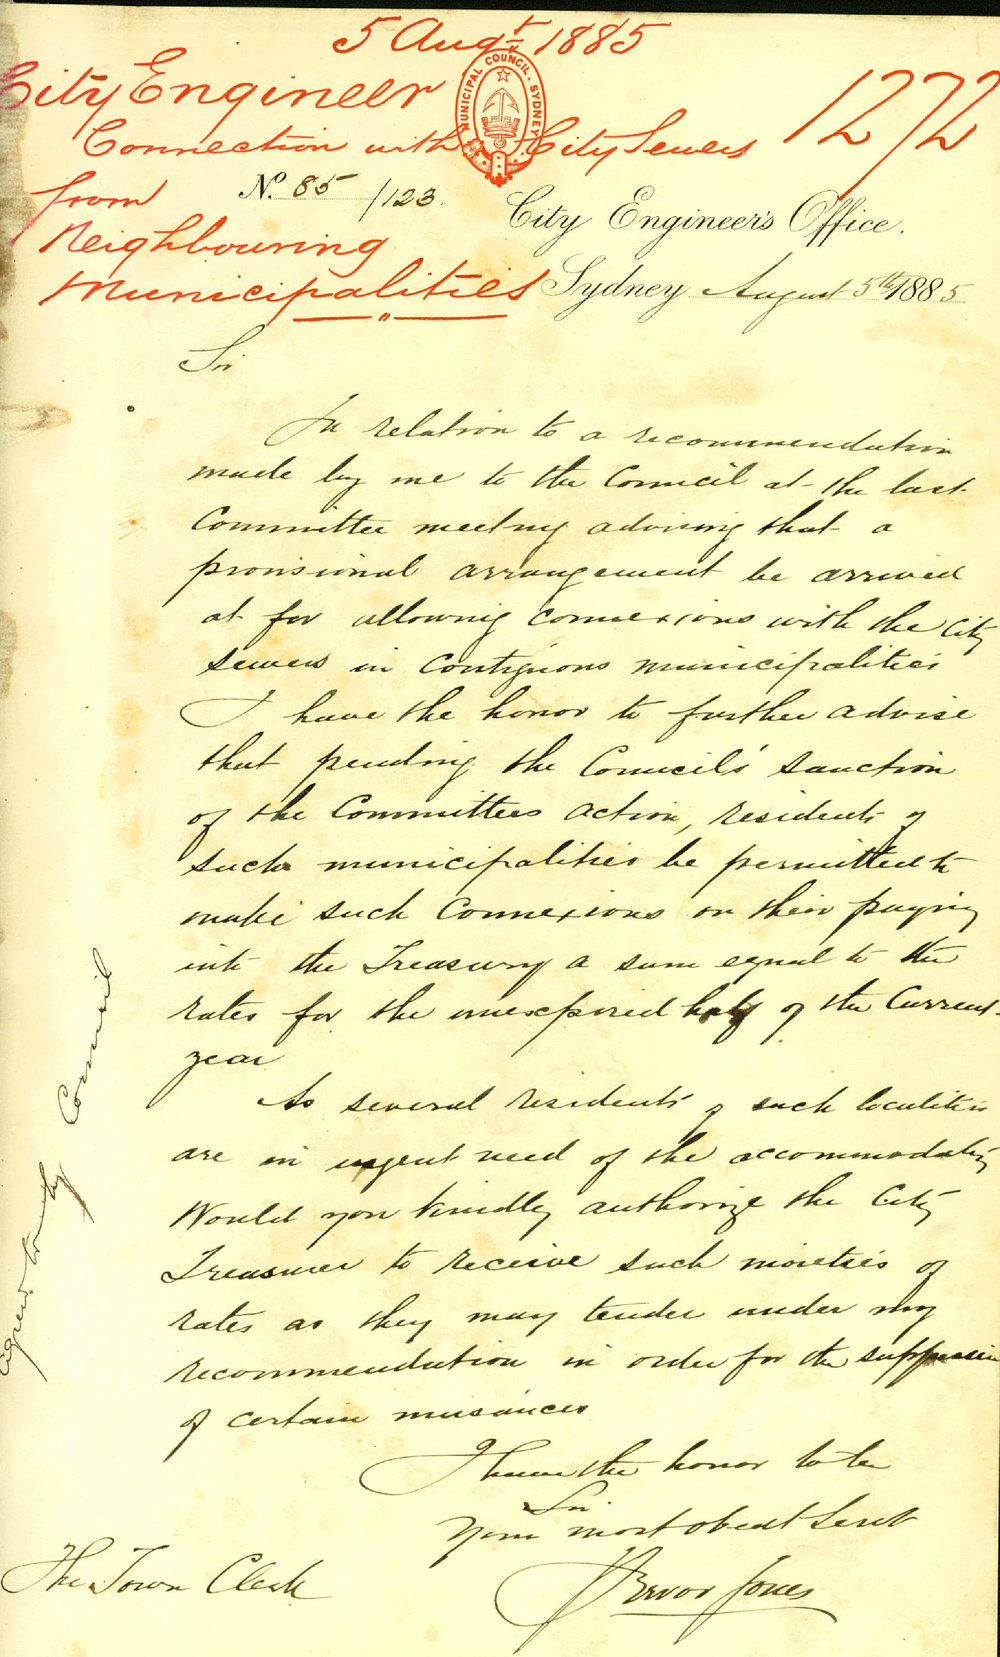 5 Augt 1885
City Engineer
MUNICIPAL COUNCIL. SYDNEY
1272
Connection with City Sewers
from
No. 85/123.
Neighbouring
Municipalities
City Engineer's Office.
Sydney August 5th 1885
Sir
In relation to a recommendation
made by me to the Council at the last
Committee meeting advising that a
provisional arrangement be arrived
at for allowing connexions with the City
sewers in contiguous municipalities
I have the honor to further advise
that pending the Council's sanction
of the Committees action, residents of
such municipalities be permitted to
make such connexions on their paying
into the Treasury a sum equal to the
rates for the unexpired half of the current
year
As several residents of such localities
are in urgent need of the accommodation
Would you kindly authorize the City
Treasurer to receive such moieties of
rates as they may tender under my
recommendation in order for the suppression
of certain nuisances
I have the honor to be
Sir
Your most obedt Servt
Trevor Jones
The Town Clerk
Agreed to by Council